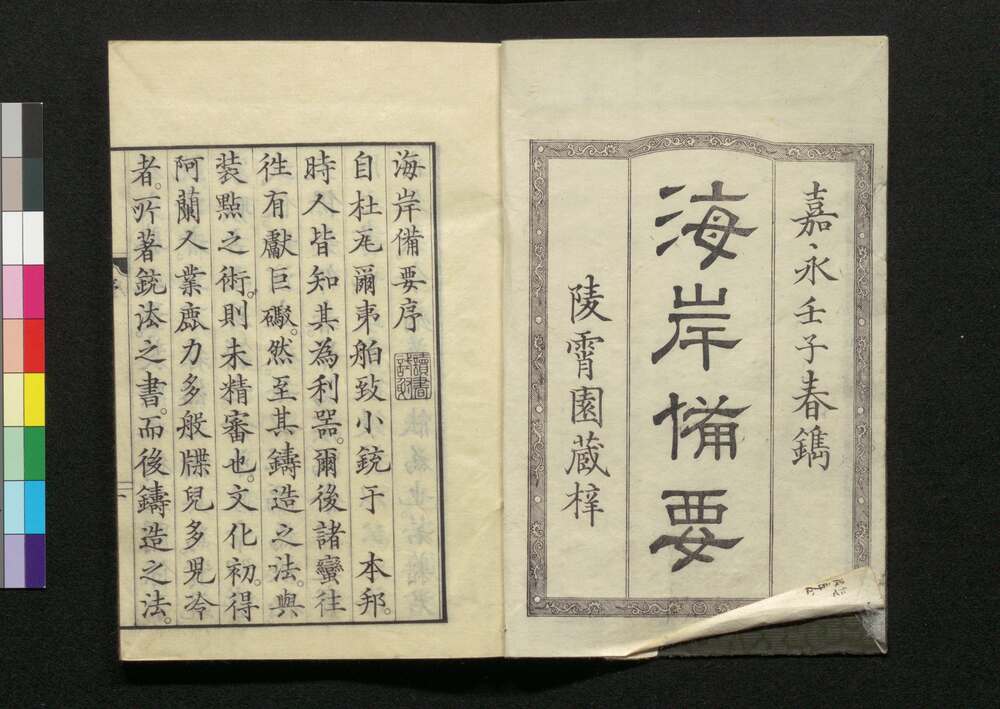 嘉永壬子春鐫
海岸備要
陵霄園蔵梓
海岸備要序
讀書
自杜瓦爾夷舶致小銃于 本邦。
時人皆知其為利器。爾後諸蠻往
徃有獻巨礮。然至其鑄造之法。與
裝點之術。則未精審也。文化初。得
阿蘭人業鹿力多般牒兒多児冷
者。所著銃法之書。而後鑄造之法。